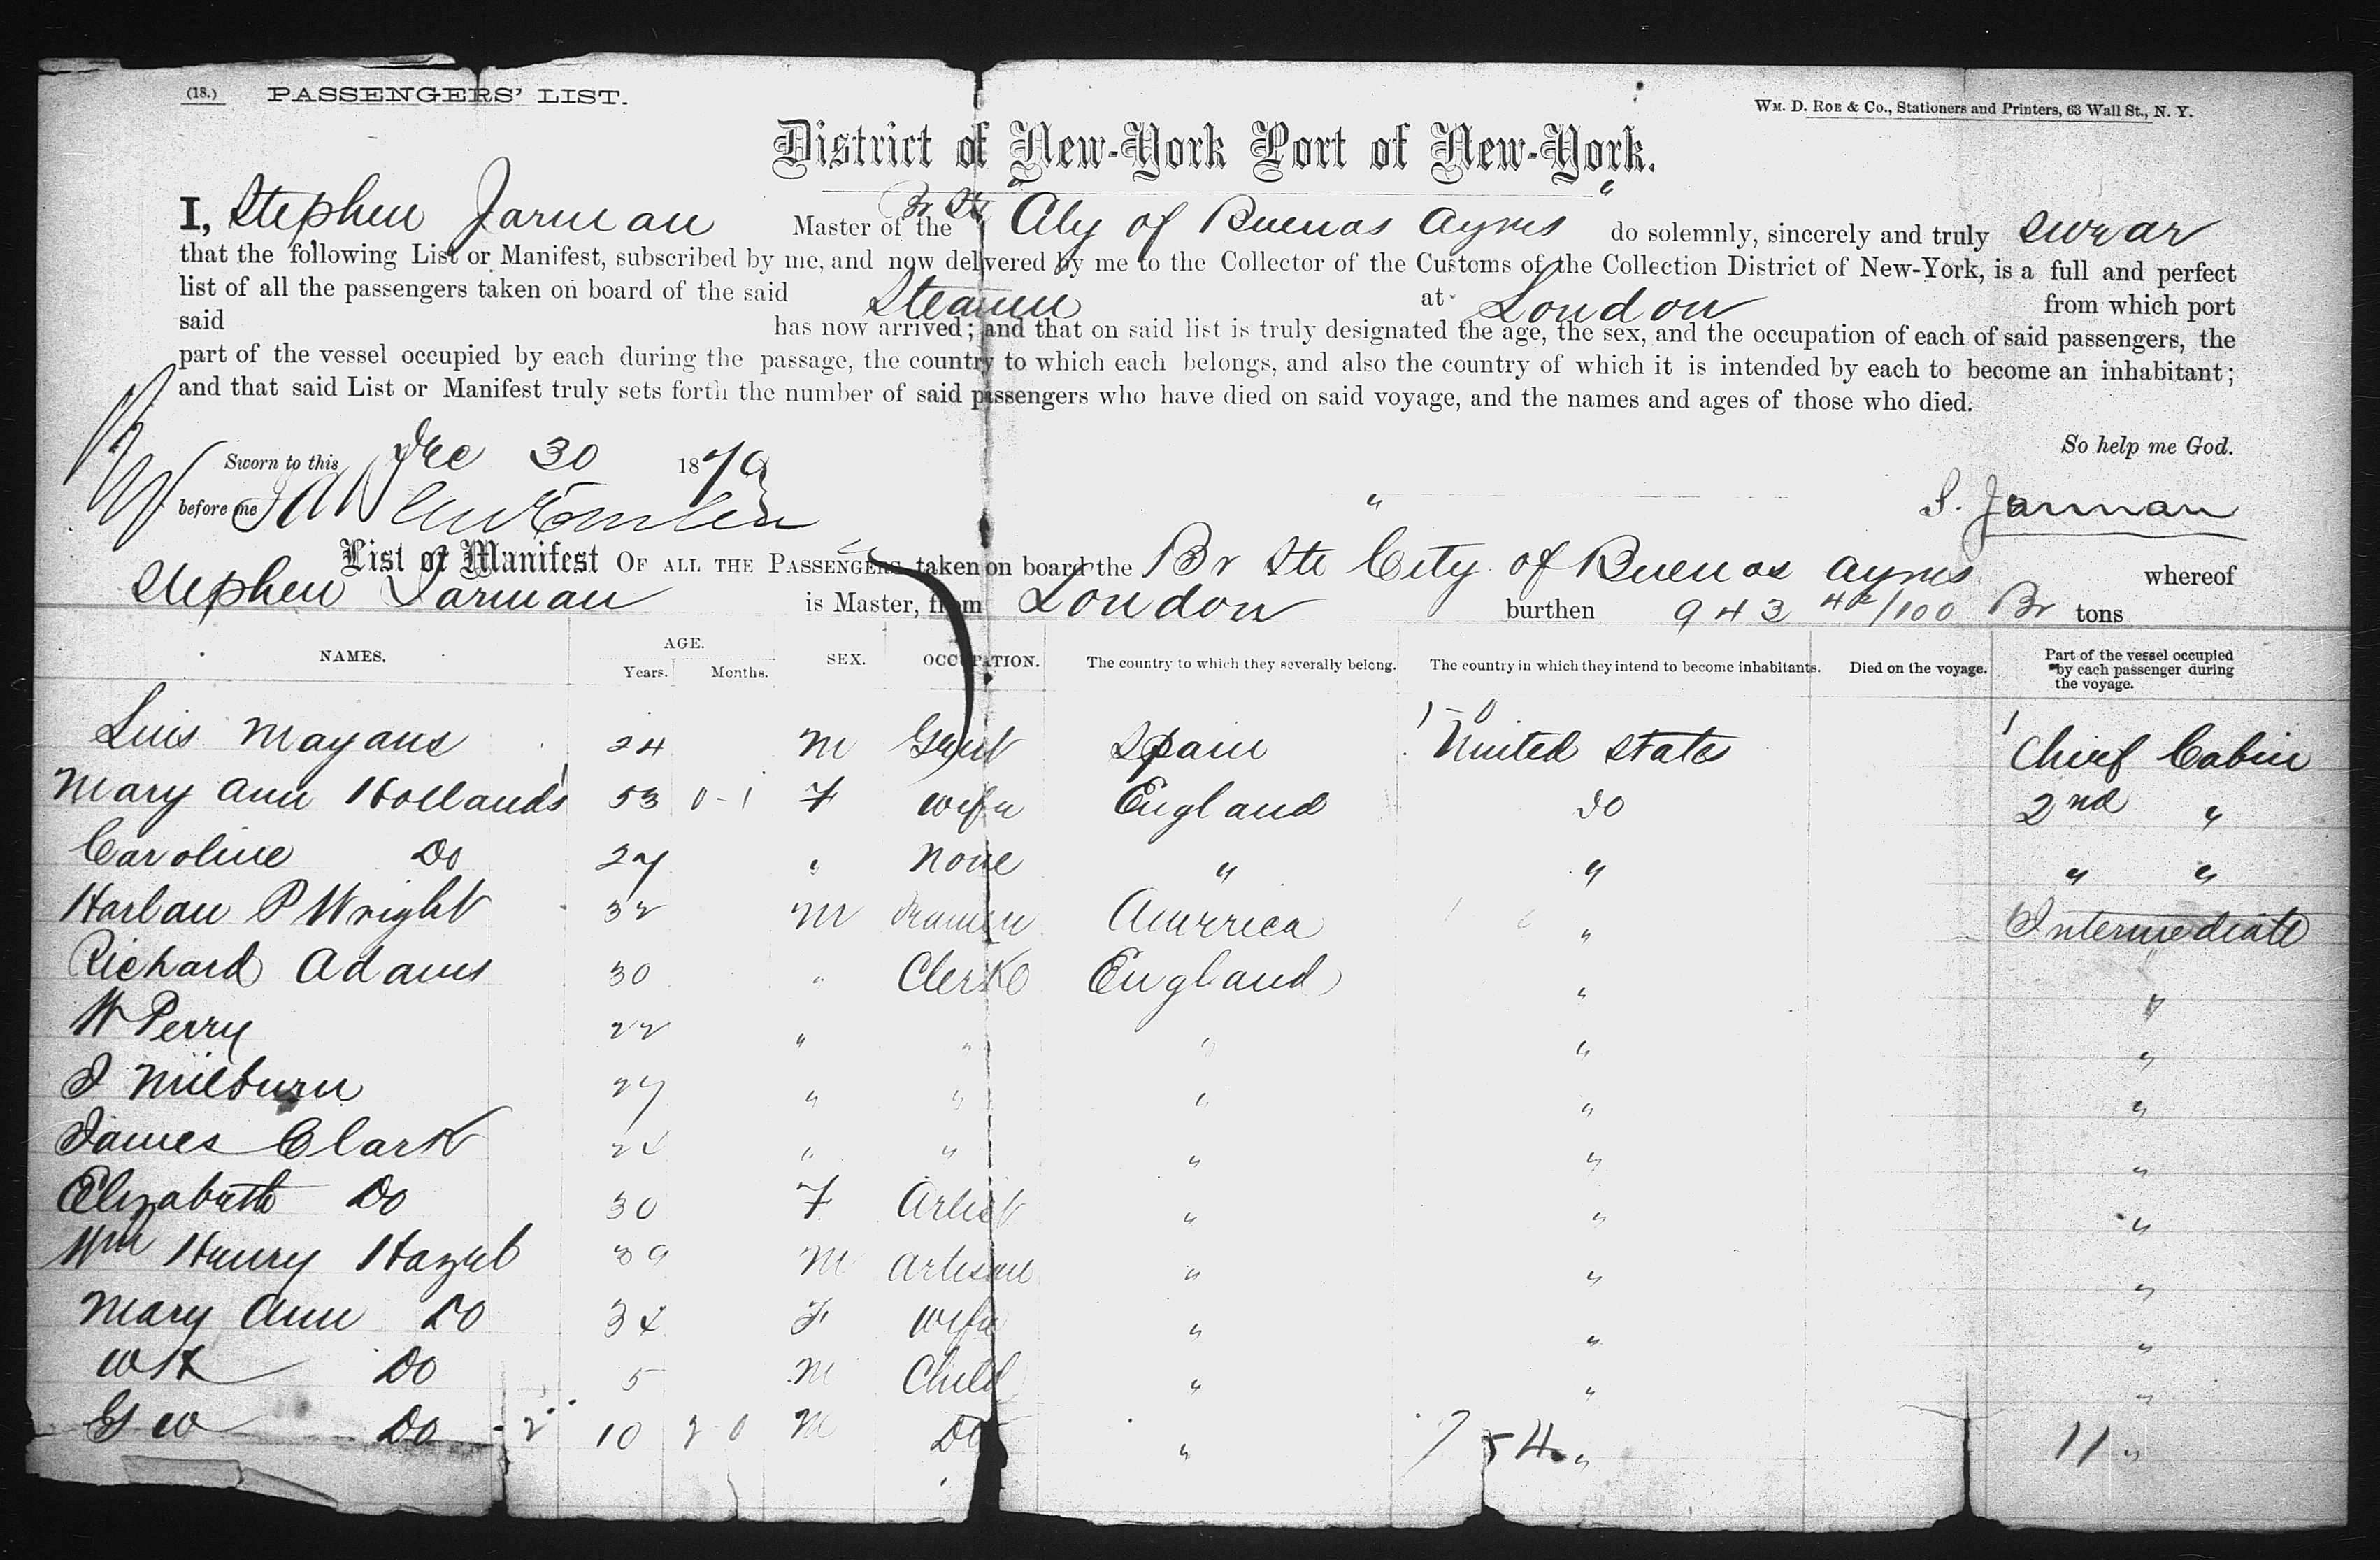 (18.) PASSENGERS' LIST.
WM. D. ROE & CO., Stationers and Printers, 63 Wall St., N. Y.
District of New-York Port of New-York.
I, Stephen Jarman Master of the Br Str "City of Buenos Ayres" do solemnly, sincerely and truly swear
that the following List or Manifest, subscribed by me, and now delivered by me to the Collector of the Customs of the Collection District of New-York, is a full and perfect
list of all the passengers taken on board of the said Steamer at London from which port
said has now arrived; and that on said list is truly designated the age, the sex, and the occupation of each of said passengers, the
part of the vessel occupied by each during the passage, the country to which each belongs, and also the country of which it is intended by each to become an inhabitant;
and that said List or Manifest truly sets forth the number of said passengers who have died on said voyage, and the names and ages of those who died.
So help me God.
Sworn to this Dec 30 1879
before me
S. Jarman
List or Manifest OF ALL THE PASSENGERS taken on board the Br Str City of Buenos Ayres whereof
Stephen Jarman is Master, from London burthen 943 42/100 Br tons
NAMES. AGE. Years. Months. SEX. OCCUPATION. The country to which they severally belong. The country in which they intend to become inhabitants. Died on the voyage. Part of the vessel occupied by each passenger during the voyage.
Luis Mayans 24 M Gent Spain United States Chief Cabin
Mary Ann Hollands 53 0-1 F Wife England Do 2nd "
Caroline Do 27 " None " " " "
Harlan P Wright 32 M America " Intermediate
Richard Adams 30 " Clerk England " "
W Perry 22 " " " " "
J Milburn 27 " " " " "
James Clark 24 " " " " "
Elizabeth Do 30 F Artist " " "
Wm Henry Hazel 39 M Artisan " " "
Mary Ann Do 34 F Wife " " "
W H Do 5 M Child " " "
G W Do 2 10 2 0 M Do " 7 54 " 11 "